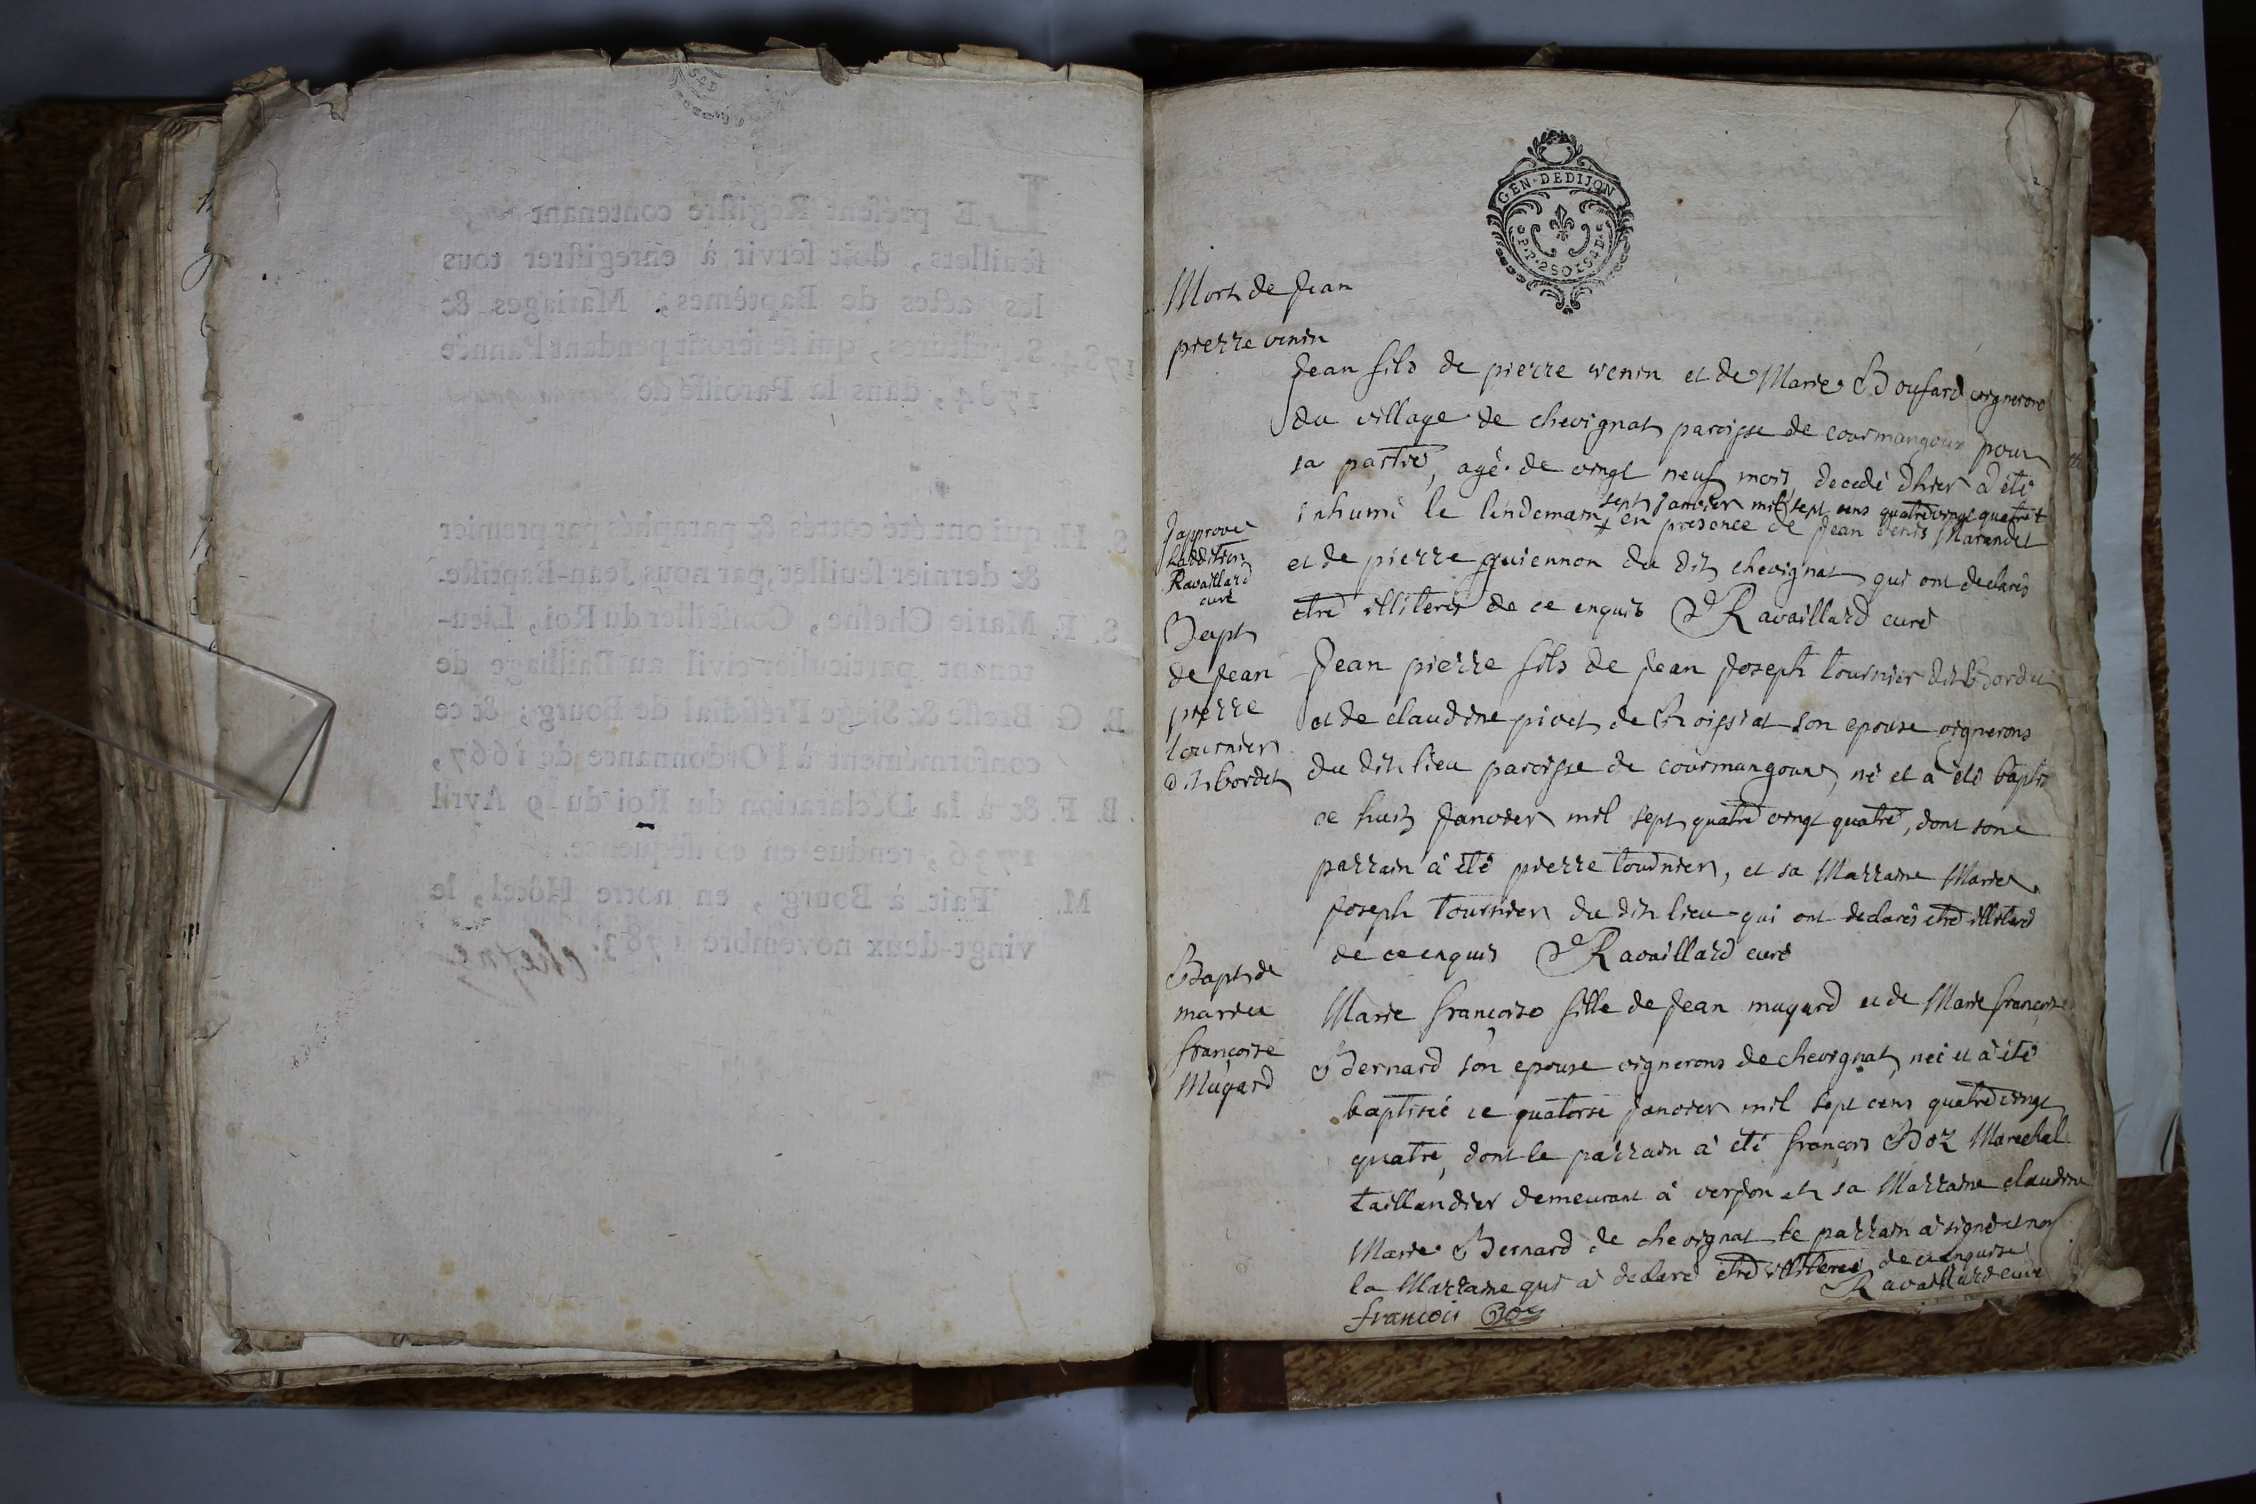 GEN·DEDIJON
P.P. 2SOLS4D
Mort de Jean
pierre venin
Jean fils de pierre venin et de Marie Boufard vignerons
du village de chevignat paroisse de courmangoux pour
sa partie, agé de vingt neuf mois, decedé d'hier a été
sept janvier mil sept cens quatrevingt quatre +
inhumé le lendemain + en presence de Jean denis Marandet
et de pierre guiennon du dit chevignat qui ont declarés
etre illiterés de ce enquis Ravaillard curé
J'approuve
l'addition
Ravaillard
curé
Bapt
de Jean
pierre
tournier
dit bordet
Jean pierre fils de Jean Joseph tournier dit Bordet
et de claudine pivet de Roissiat son epouse vignerons
du dit lieu paroisse de courmangoux, né et a été baptisé
ce huit Janvier mil sept quatre vingt quatre, dont son
parrain a été pierre tournier, et sa Marraine Marie
Joseph tournier du dit lieu qui ont declarés etre illiterés
de ce enquis Ravaillard curé
Bapt de
marie
françoise
Mugard
Marie françoise fille de Jean mugard et de Marie françoise
Bernard son epouse vignerons de chevignat, née et a été
baptisée ce quatorse Janvier mil sept cens quatrevingt
quatre, dont le parrain a été françois Boz Marechal
taillandier demeurant à verjon et sa Marraine claudine
Marie Bernard de chevignat le parrain a signé et non
la Marraine qui a declaré etre illiterée de ce enquise
Ravaillard curé
francois Boz
LE présent Régistre contenant
feuillets, doit servir à enregistrer tous
les actes de Baptêmes, Mariages &
Sépultures, qui se feront pendant l'année
1784, dans la Paroisse de
qui ont été cottés & paraphés par premier
& dernier feuillet, par nous Jean-Baptiste-
Marie Chesne, Conseiller du Roi, Lieu-
tenant particulier civil au Bailliage de
Bresse & Siége Présidial de Bourg; & ce
conformément à l'Ordonnance de 1667,
& à la Déclaration du Roi du 9 Avril
1736, rendue en conséquence.
Fait à Bourg, en notre Hôtel, le
vingt-deux novembre 1783.
chesne